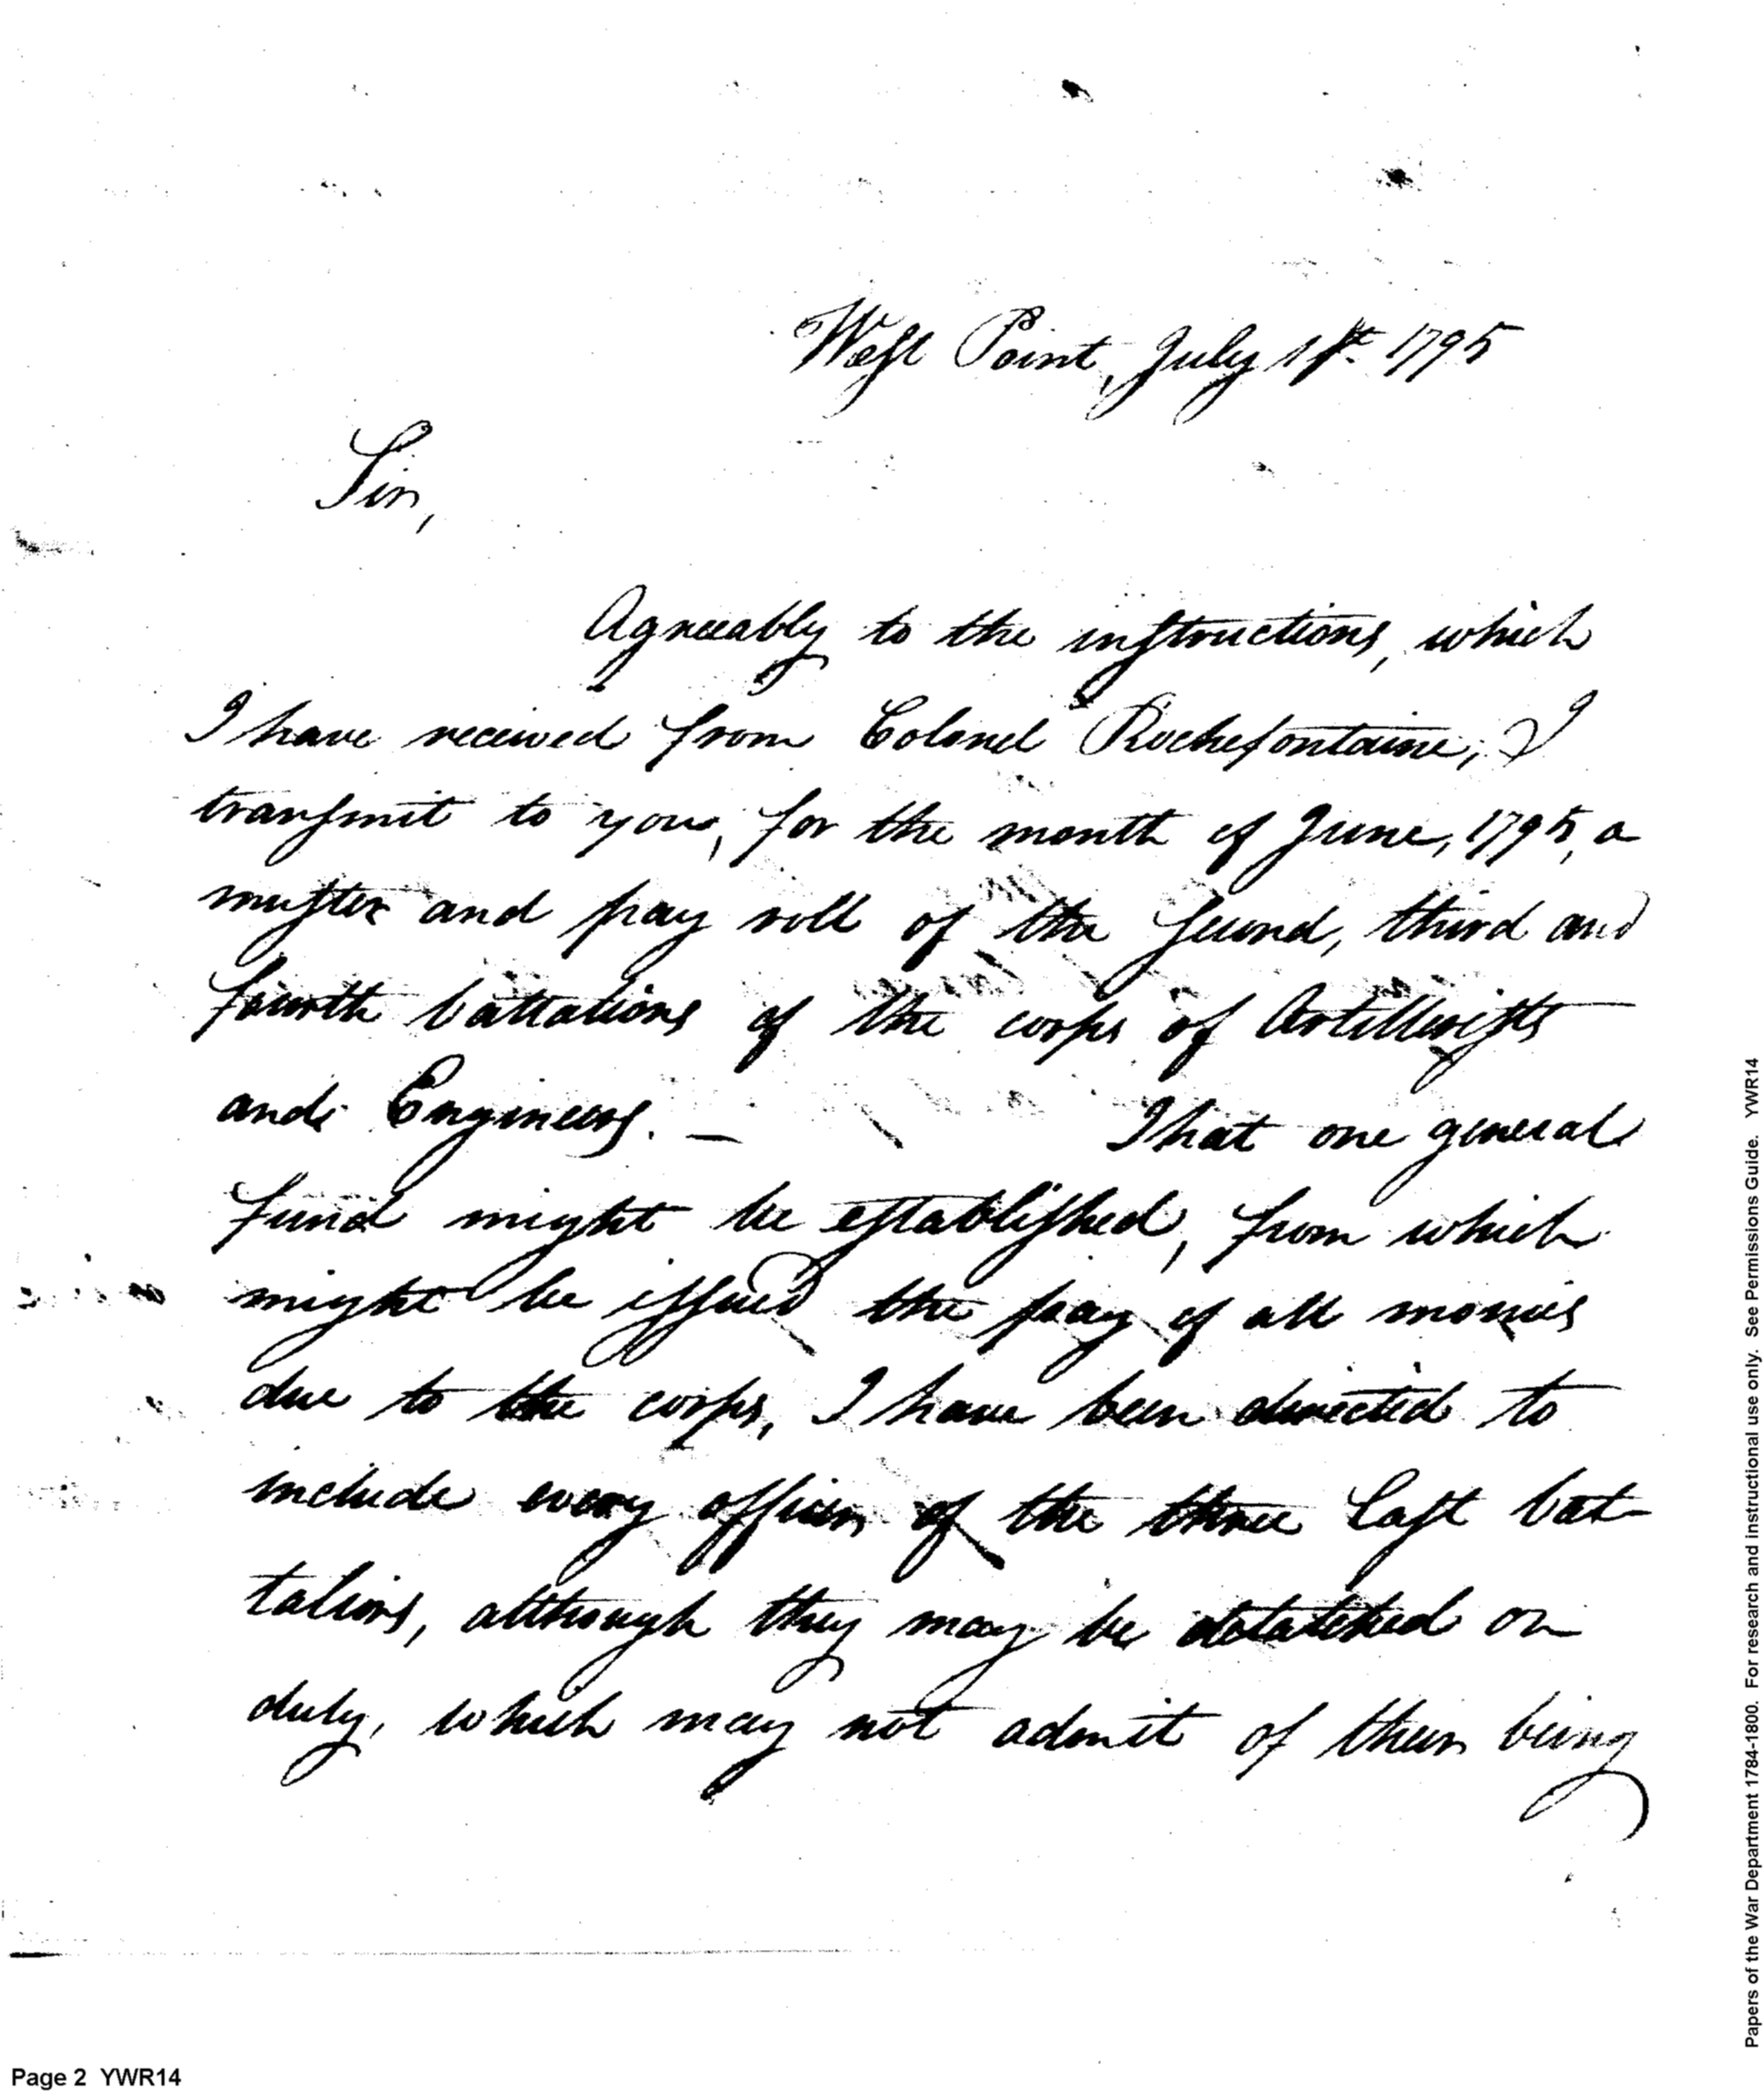 West Point, July 1st. 1795
Sir,
Agreeably to the instructions, which
I have received from Colonel Rochefontaine, I
transmit to you, for the month of June, 1795, a
muster and pay roll of the second, third and
fourth battalions of the corps of Artillerists
and Engineers. — That one general
fund might be established, from which
might be issued the pay of all monies
due to the corps, I have been directed to
include every officer of the three last bat-
talions, although they may be detatched on
duty, which may not admit of their being
Page 2 YWR14
Papers of the War Department 1784-1800. For research and instructional use only. See Permissions Guide. YWR14